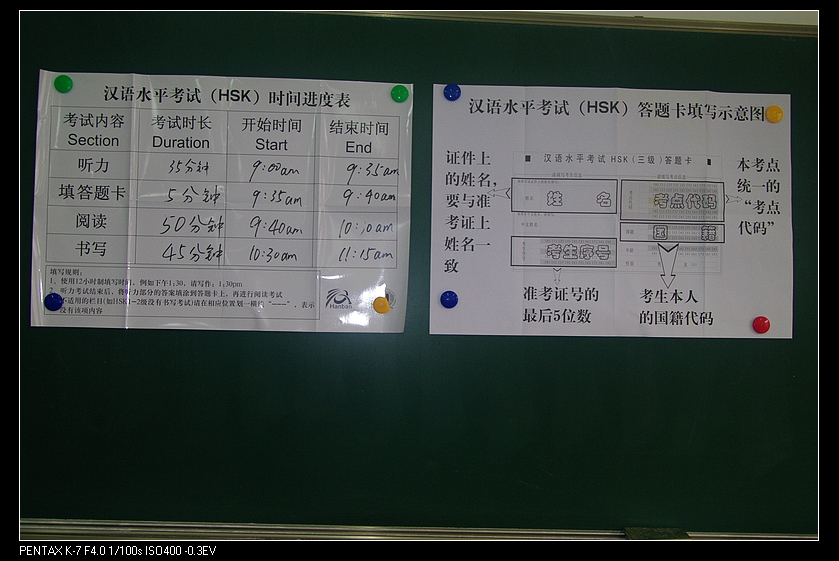 汉语水平考试（HSK）时间进度表
考试内容 Section 考试时长 Duration 开始时间 Start 结束时间 End
听力 35分钟 9:00am 9:35am
填答题卡 5分钟 9:35am 9:40am
阅读 50分钟 9:40am
书写 45分钟 10:30am 11:15am
填写规则:
1、使用12小时制填写时间，例如下午1:30，请写作: 1:30pm
2、听力考试结束后，将听力部分的答案填涂到答题卡上，再进行阅读考试
不适用的栏目(如HSK1-2级没有书写考试)请在相应位置划一横线“——”，表示
没有该项内容
Hanban
汉语水平考试（HSK）答题卡填写示意图
汉语水平考试 HSK（三级）答题卡
证件上
的姓名，
要与准
考证上
姓名一
致
姓名
考点代码
国籍
考生序号
本考点
统一的
“考点
代码”
准考证号的
最后5位数
考生本人
的国籍代码
PENTAX K-7 F4.0 1/100s ISO400 -0.3EV